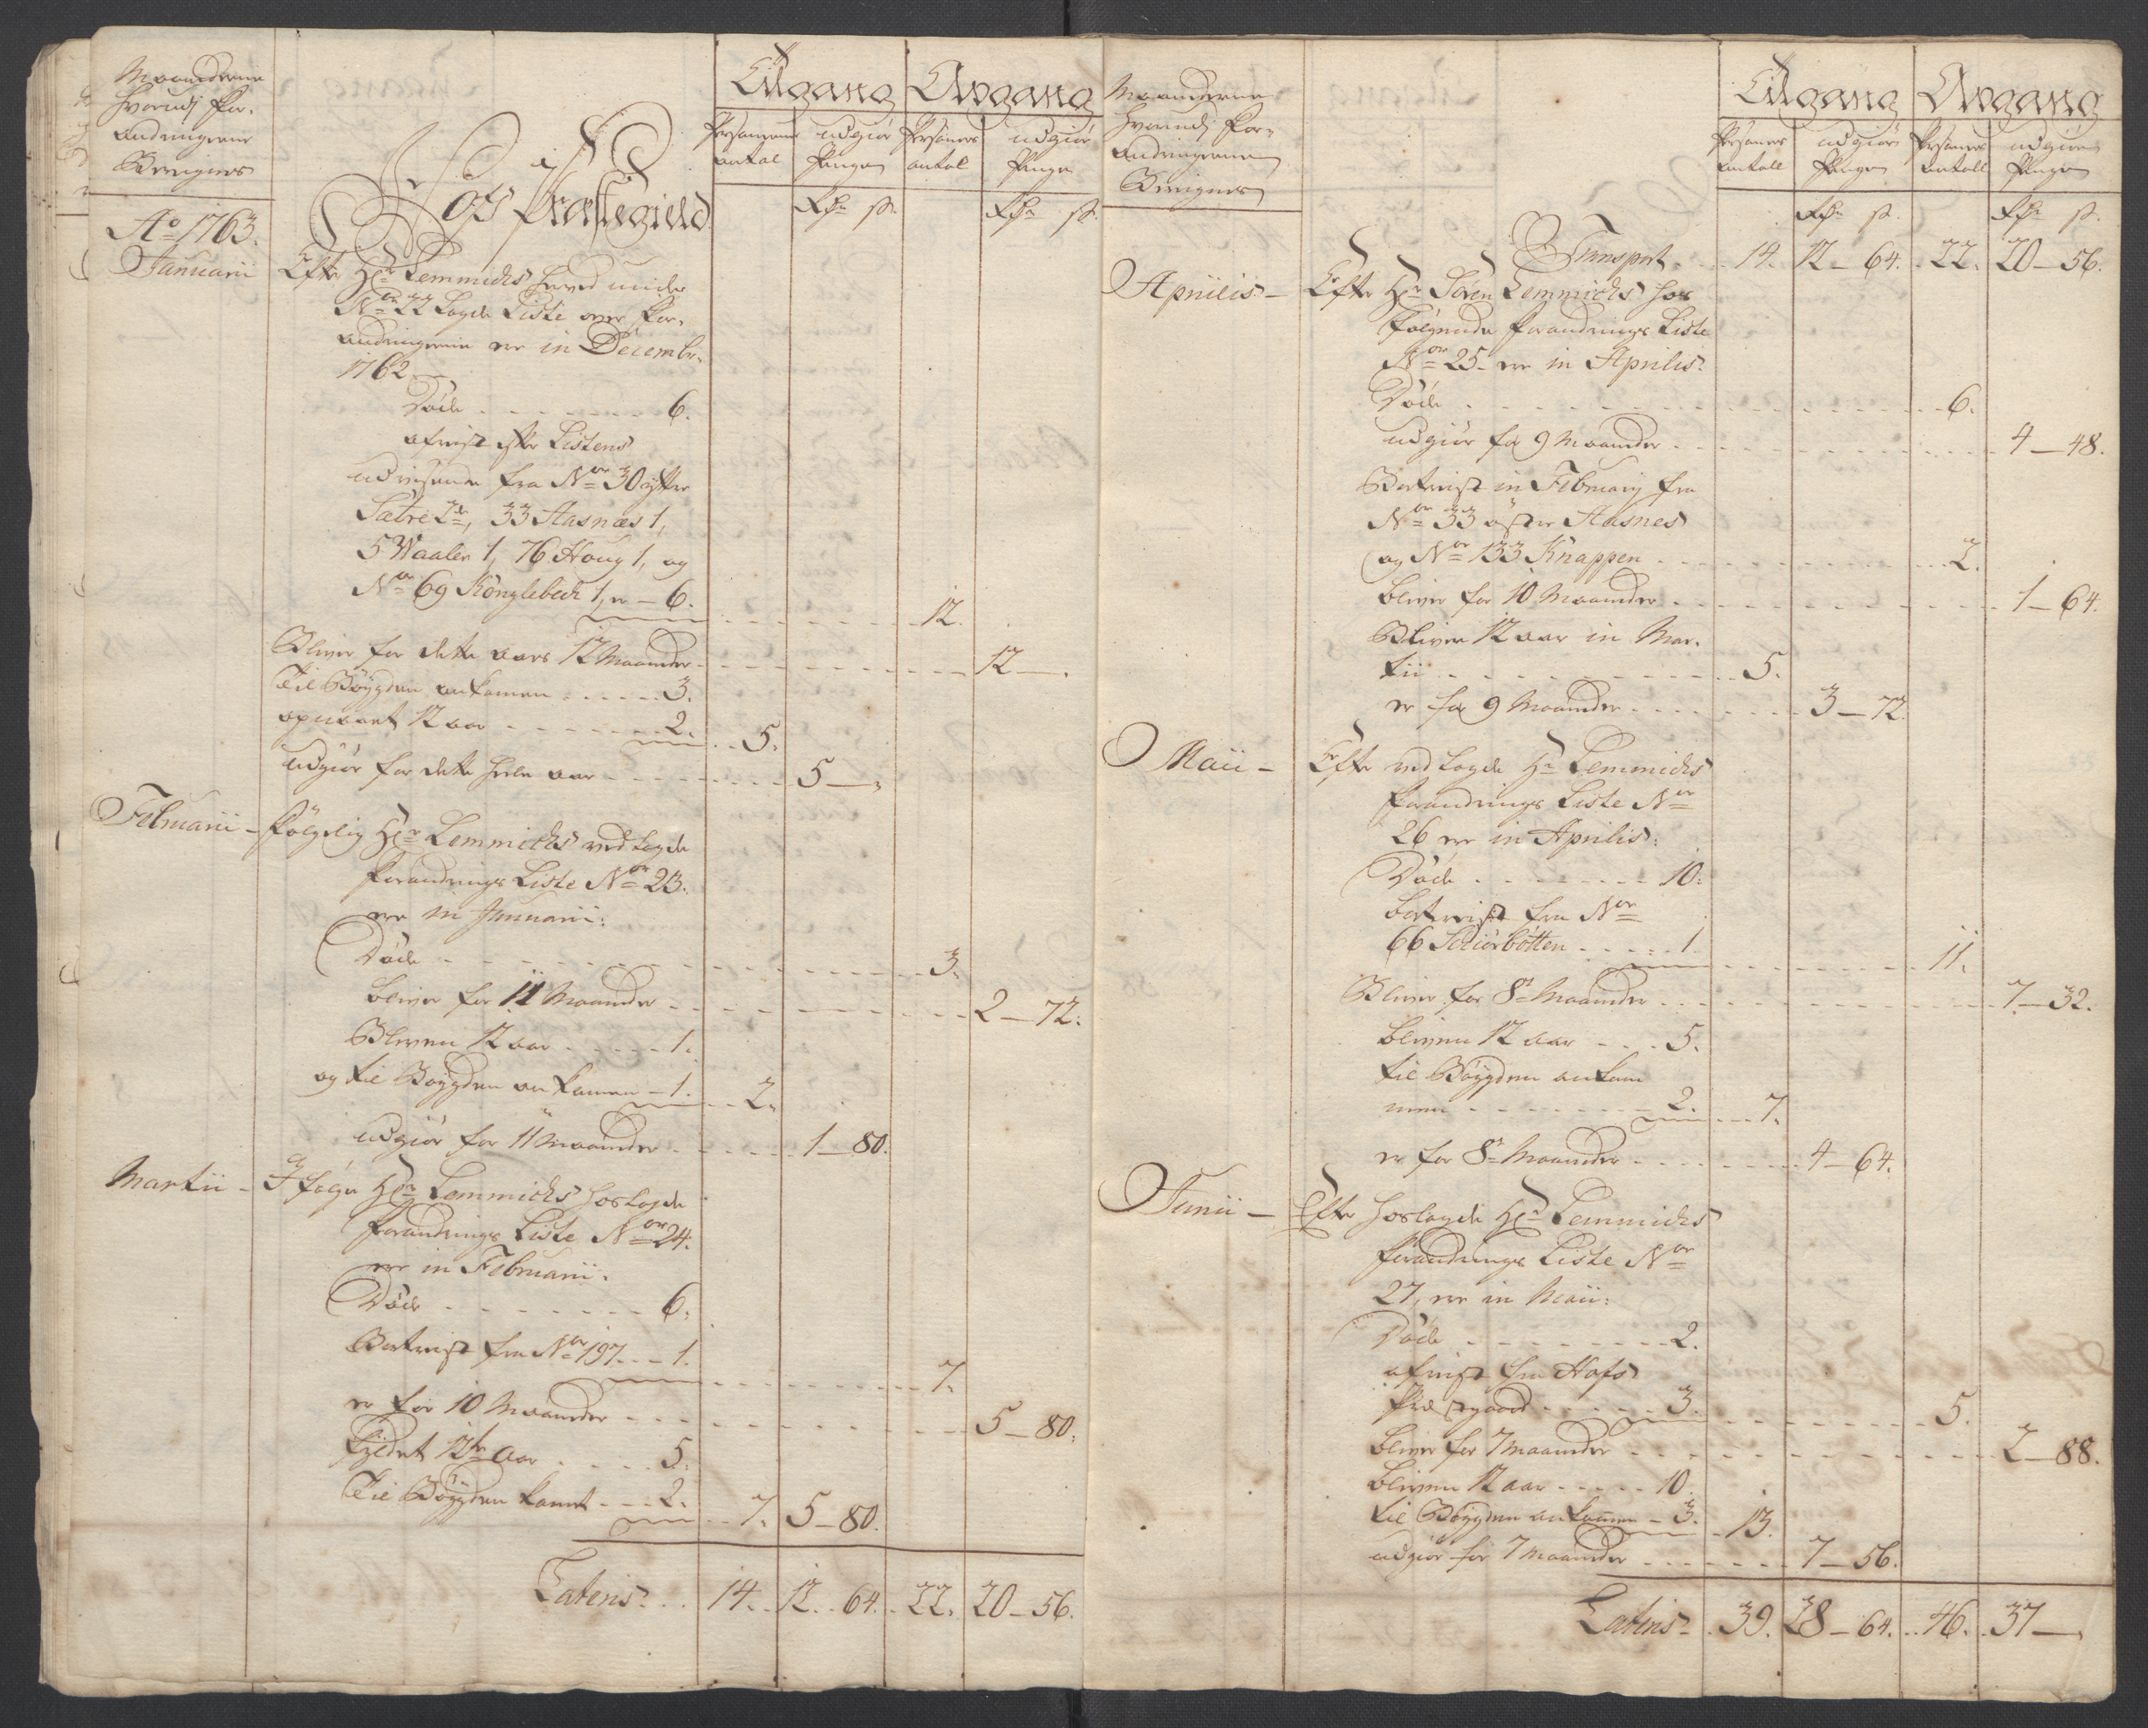 Maanderne
hvorudj For-
andringerne
Berignes
Tilgang Avgang
Persornernes antal udgiør Penge Persones antal udgiør Penge
Rdr s. Rdr s.
Hofs Præstegield
Ao 1763.
Januarii Efter Hr Lemmichs herved under
Nor 22 Lagde Liste over For-
andringerne er in Decembr
1762
Døde 6.
afreist efter Listens
udvisende fra Nor 30 ytter
Sætre 2de, 33 Aasnæs 1,
5 Waaler 1, 76 Houg 1, og
Nor 69 Könglebech 1, er - 6.
12.
Bliver for dette aars 12 Maaneder 12 -
Til Bøygden ankomen 3.
opnaaet 12 aar 2. 5.
udgiør for dette heele aar 5 -
Februarii - følgelig Hr Lemmichs vedlagde
forandrings Liste Nor 23.
ere in Januarii:
Døde 3.
bliver for 11 Maaneder 2 - 72.
Bleven 12 aar 1.
og til Bøygden ankommen - 1. 2.
udgiør for 11 Maaneder 1 - 80.
Martii - Ifølge Hr Lemmichs hoslagde
forandrings Liste Nor 24.
ere in Februarii.
Døde 6.
Bortreist fra Nor 197 1.
7.
er for 10 Maaneder 5 - 80.
fyldet 12te Aar 5.
Til Bøygden komet 2. 7. 5 - 80.
Lateris 14. 12 - 64. 22. 20 - 56.
Maanderne
hvorudj For-
andringerne
Berignes
Tilgang Avgang
Persones antall udgiør Penge Persones antall udgiør Penge
Rdr s. Rdr s.
Transport 14. 12 - 64. 22. 20 - 56.
Aprilis - Efter Hr Søren Lemmichs hos
følgende forandrings Liste
Nor 25 - ere in Aprilis
Døde 6.
udgiør for 9 Maaneder 4 - 48.
Bortreist in February fra
Nor 33 öster Aasnes
og Nor 133 Knappen 2.
bliver for 10 Maaneder 1 - 64.
Bleven 12 aar in Mar-
tii 5.
er for 9 Maaneder 3 - 72.
Maii - Efter vedlagde Hr Lemmichs
forandrings Liste Nor
26 ere in Aprilis:
Døde 10.
bortreist fra Nor
66 Schiörbotten 1.
11.
Bliver for 8te Maaneder 7 - 32.
bleven 12 aar 5.
til Bøygden ankom
men 2. 7.
er for 8te Maaneder 4 - 64.
Junii - Efter hoslagde Hr Lemmichs
forandrings Liste Nor
27, ere in Maii:
Døde 2.
afreist fra Hofs
Præstegaard 3. 5.
bliver for 7 Maaneder 2 - 88.
bleven 12 aar 10.
til Bøygden ankommen - 3. 13.
udgiør for 7 Maaneder 7 - 56.
Lateris 39. 28 - 64. 46. 37 -